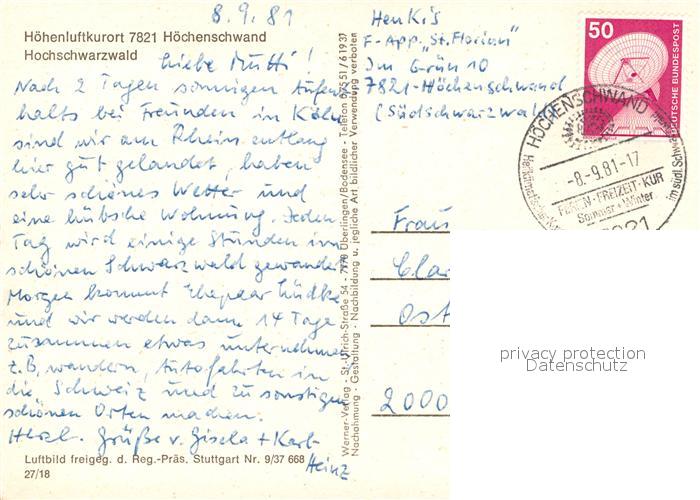 8.9.81
Höhenluftkurort 7821 Höchenschwand
Hochschwarzwald
Liebe Mutti!
Nach 2 Tagen sonnigen Aufent
halts bei Freunden in Köln
sind wir am Rhein entlang
hier gut gelandet, haben
sehr schönes Wetter und
eine hübsche Wohnung. Jeden
Tag wird einige Stunden im
schönen Schwarzwald gewandert
Morgen kommt Ehepaar Lüdke
und wir werden dann 14 Tage
zusammen etwas unternehmen
z.B. wandern, Autofahrten in
die Schweiz und zu sonstigen
schönen Orten machen.
Herzl. Grüße v. Gisela + Karl-
Heinz
Luftbild freigeg. d. Reg.-Präs. Stuttgart Nr. 9/37 668
27/18
Werner-Verlag - St.-Ulrich-Straße 54 - 7770 Überlingen/Bodensee - Telefon 0 75 51 / 6 19 37
Nachbildung u. jegliche Art bildlicher Verwendung verboten
HenKis
F-App. „St. Florian"
Im Grün 10
7821-Höchenschwand
(Südschwarzwald
50
DEUTSCHE BUNDESPOST
HÖCHENSCHWAND
-8.-9.81-17
FERIEN·FREIZEIT·KUR
Sommer + Winter
im südl. Schw
7821
Frau
Cla
Ost
2000
privacy protection
Datenschutz